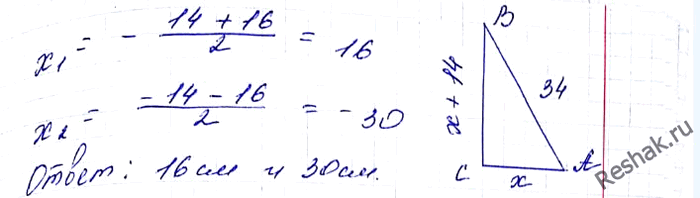 x₁ = - 14 + 16 / 2 = 16
x₂ = -14 - 16 / 2 = -30
Ответ: 16 см и 30 см.
B
x + 14
34
C
x
A
Reshak.ru